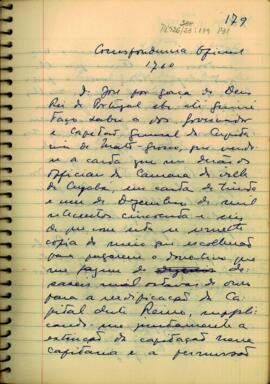 179
Correspondencia Oficial
1760
D. José por graça de Deus
Rei de Portugal
faço saber a vos Governador
e Capitão General da Capita
nia de Mato Grosso, que vendo
a carta que me deram os
officiaes da Camara da villa
de Cuyabá, em carta de trinta
e um de Dezembro de mil
setecentos cincoenta e seis
copia do meio que escolheram
para pagarem o donativo que
me fazem de
para a reedificação da Ca
pital deste Reino, suppli
cando me juntamente a
extinção da capitação nessa
capitania e a permissão